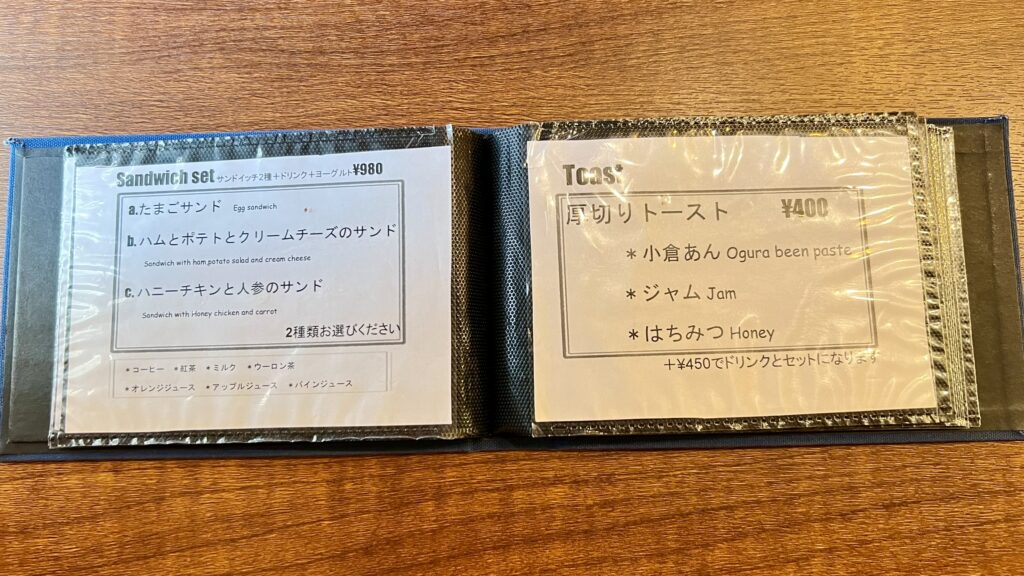 Sandwich set サンドイッチ2種＋ドリンク＋ヨーグルト¥980
a.たまごサンド Egg sandwich
b.ハムとポテトとクリームチーズのサンド
Sandwich with ham,potato salad and cream cheese
c.ハニーチキンと人参のサンド
Sandwich with Honey chicken and carrot
2種類お選びください
＊コーヒー ＊紅茶 ＊ミルク ＊ウーロン茶
＊オレンジジュース ＊アップルジュース ＊パインジュース
Toast
厚切りトースト ¥400
＊小倉あん Ogura been paste
＊ジャム Jam
＊はちみつ Honey
＋¥450でドリンクとセットになります